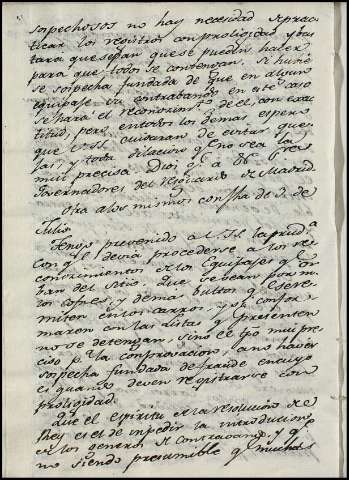 sospechosos no hay necesidad de prac
ticar los registros con prolixidad, y bas
tara que sepan que se pueden hacer
para que todos se contengan. Si huvie
se sospecha fundada de que en alguno
equipaje va contrabando en este caso
se hará el reconocim.to de el con exac
titud, pero en todos los demas espero
que V.SS. cuidaran de evitar que
jas, y toda dilacion q.e no sea la
mui precisa. Dios g.e a
Governadores del resguardo de Madrid.
Otra a los mismos con fha de 3 de
Julio
Tengo prevenido a V.SS. la prud.a
con q.e devia procederse a los re
conocimientos de los Equipages q.e
del sitio. Que
los cofres, y demas bultos q.e se re
miten en los carros, y q.e confor
maren con las listas q.e presenten
no se detengan, sino el tpo mui pre
ciso p.a la confrontacion, a no haver
sospecha fundada de fraude en cuyo
es quando deven registrarse con
prolixidad.
Que el espiritu de la resolucion de
Rey es el de impedir la introduccion
de los generos de Contravando, y q.e
no siendo presumible q.e muchos